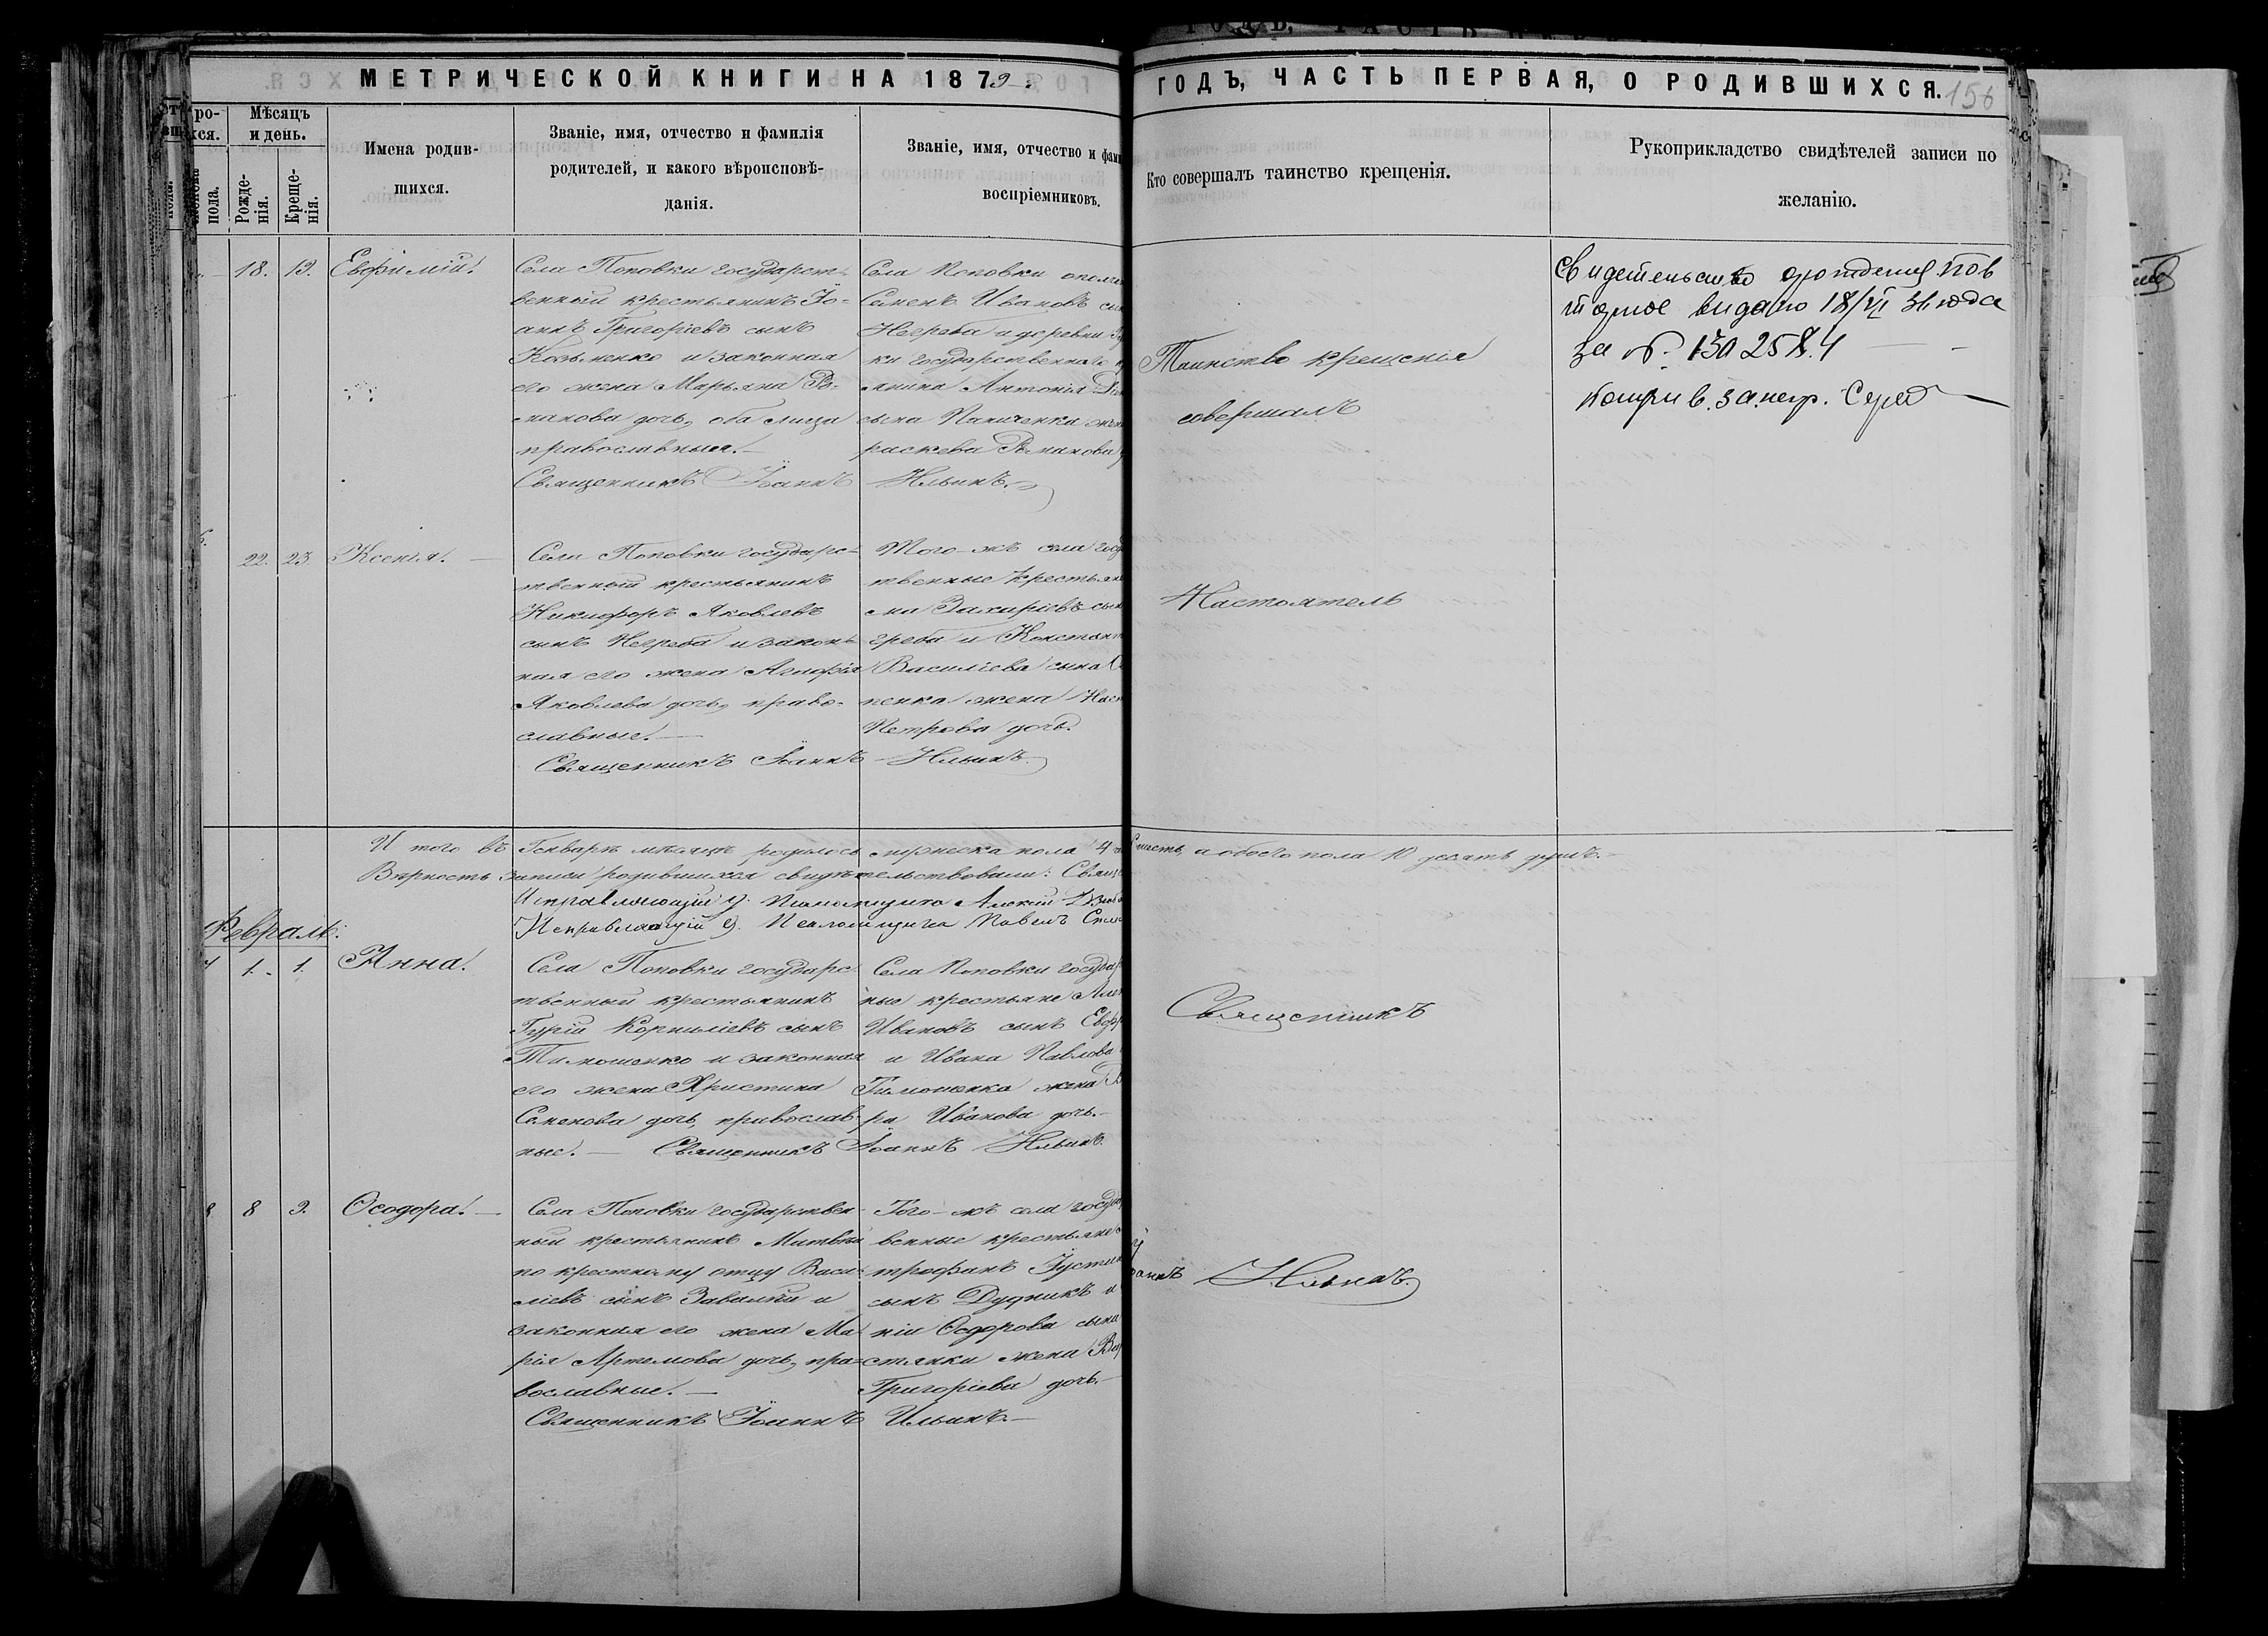 МЕТРИЧЕСКОЙ КНИГИ НА 1879
ГОДЪ, ЧАСТЬ ПЕРВАЯ, О РОДИВШИХСЯ.
156
Мѣсяцъ и день.
Рожде-
нія.
Креще-
нія.
пола.
Имена родив-
шихся.
Званіе, имя, отчество и фамилія
родителей, и какого вѣроисповѣ-
данія.
Званіе, имя, отчество и фам
воспріемниковъ.
Кто совершалъ таинство крещенія.
Рукоприкладство свидѣтелей записи по
желанію.
18. 19. Евфимій.
Села Поповки государст-
венный крестьянинъ Іо-
аннъ Григоріевъ сынъ
и законная
его жена Марьяна Ро-
манова дочь, оба лица
православные.
Священникъ Іоаннъ Ильинъ.
Села Поповки
Семенъ Ивановъ сы
Негреба и деревни
ки государственнаго
янина Антонія
сына жен
раскева Романова
Таинство крещенія
совершалъ
видано 18/VI 31 года
за №
22. 23. Ксенія.
Села Поповки государс-
твенный крестьянинъ
Никифоръ Яковлевъ
сынъ Негреба и закон-
ная его жена Агафія
Яковлева дочь, право-
славные.
Священникъ Іоаннъ Ильинъ.
Того-жъ села госу
твенные крестьяне
ма Захаріевъ сын
греба и Констант
Василіева сына
ненка жена Наст
Петрова дочь.
Настоятель
И того въ Генварѣ мѣсяцѣ родилось мужеска пола 4
шесть, а обоего пола 10 десять душъ.
Вѣрность записи родившихся свидѣтельствовали: Свящ
Исправляющій д. Псаломщика Алексій
Исправляющій д. Псаломщика Павелъ
Февраль:
1. 1. Анна.
Села Поповки государс-
твенный крестьянинъ
Гурій Корниліевъ сынъ
Тимошенко и законная
его жена Христина
Семенова дочь, православ-
ные. Священникъ Іоаннъ Ильинъ.
Села Поповки государ
ные крестьяне Але
Ивановъ сынъ
и Ивана Павлова
Тимошенка жена
ра Иванова дочь.
Священникъ
8 9. Ѳеодора.
Села Поповки государствен-
ный крестьянинъ Матвѣй
по крестному отцу Васи-
ліевъ сынъ и
законная его жена Ма-
рія Артемова дочь, пра-
вославные.
Священникъ Іоаннъ Ильинъ.
Того-жъ села госуда
венные крестьяне
трофанъ Іустин
сынъ Дудникъ и
ніи Ѳедорова сына
стянки жена Ва
Григоріева дочь.
оаннъ Ильинъ.